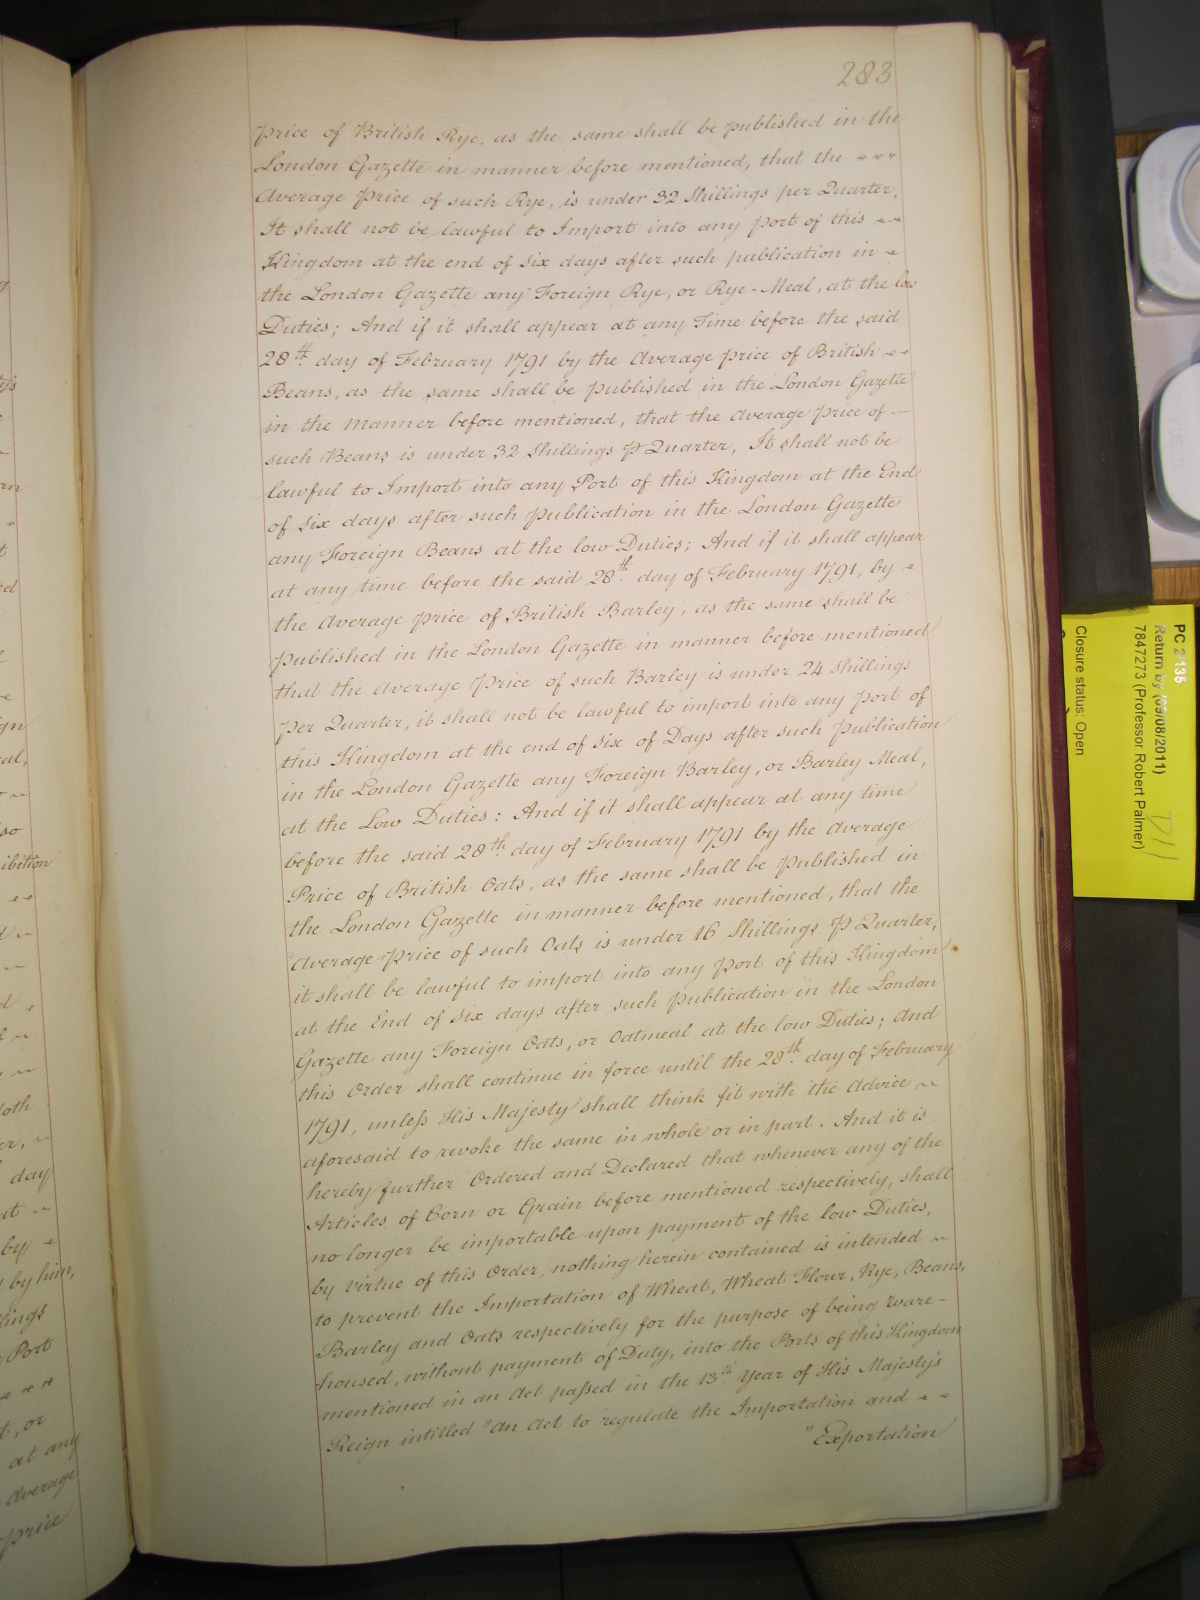 283
Price of British Rye, as the same shall be published in the
London Gazette in manner before mentioned, that the
Average Price of such Rye, is under 32 Shillings per Quarter,
It shall not be lawful to Import into any Port of this
Kingdom at the end of Six days after such publication in
the London Gazette any Foreign Rye, or Rye-Meal, at the low
Duties; And if it shall appear at any Time before the said
28th. day of February 1791 by the Average price of British
Beans, as the same shall be published in the London Gazette
in the manner before mentioned, that the Average Price of —
such Beans is under 32 Shillings P Quarter, It shall not be
lawful to Import into any Port of this Kingdom at the End
of Six days after such Publication in the London Gazette
any Foreign Beans at the low Duties; And if it shall appear
at any time before the said 28th. day of February 1791, by
the Average Price of British Barley, as the same shall be
published in the London Gazette in manner before mentioned
that the Average Price of such Barley is under 24 Shillings
per Quarter, it shall not be lawful to import into any Port of
this Kingdom at the end of Six of Days after such Publication
in the London Gazette any Foreign Barley, or Barley Meal,
at the Low Duties: And if it shall appear at any time
before the said 28th. day of February 1791 by the Average
Price of British Oats, as the same shall be Published in
the London Gazette in manner before mentioned, that the
Average Price of such Oats is under 16 Shillings P Quarter,
it shall be lawful to import into any Port of this Kingdom
at the End of Six days after such Publication in the London
Gazette any Foreign Oats, or Oatmeal at the low Duties; And
this Order shall continue in force until the 28th. day of February
1791, unless His Majesty shall think fit with the Advice
aforesaid to revoke the same in whole or in part. And it is
hereby further Ordered and Declared that whenever any of the
Articles of Corn or Grain before mentioned respectively, shall
no longer be importable upon payment of the low Duties,
by virtue of this Order, nothing herein contained is intended
to prevent the Importation of Wheat, Wheat Flour, Rye, Beans,
Barley and Oats respectively for the purpose of being Ware-
housed, without payment of Duty, into the Ports of this Kingdom
mentioned in an Act passed in the 13th. Year of His Majesty's
Reign intitled "An Act to regulate the Importation and
"Exportation
PC 2/135
Return by (09/08/2011)
7847273 (Professor Robert Palmer)
Closure status: Open
D11
ibition
day
by him,
Port
at any
Average
Price